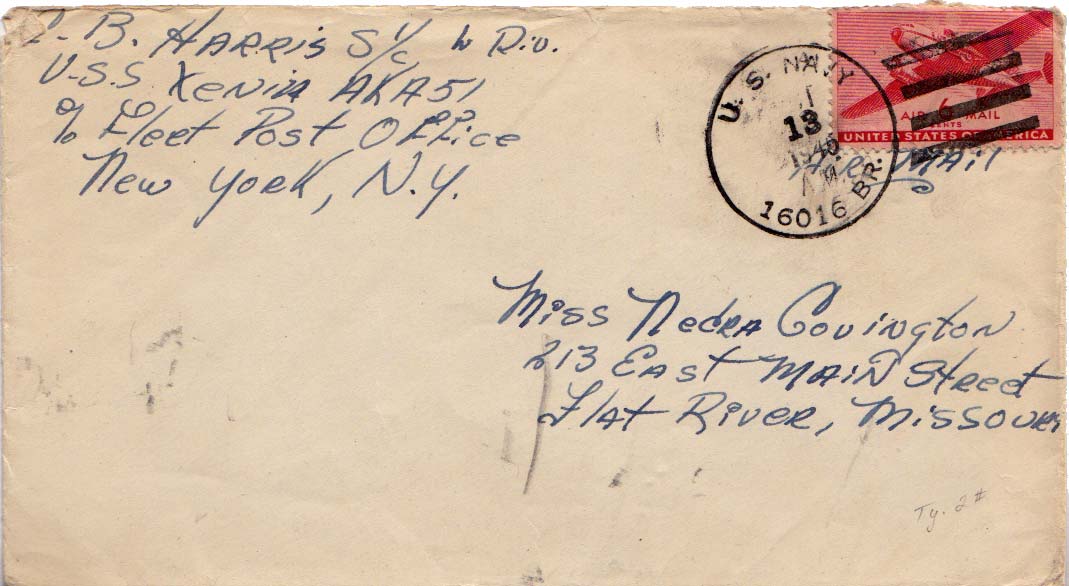 B. HARRIS S 1/c W Div.
U.S.S Xenia AKA51
c/o Fleet Post Office
New York, N.Y.
U.S. NAVY
13
194
AM
16016 BR.
AIR 6 MAIL
CENTS
UNITED STATES OF AMERICA
AIR MAIL
Miss Nedra Covington
213 East Main Street
Flat River, Missouri
Ty. 2#